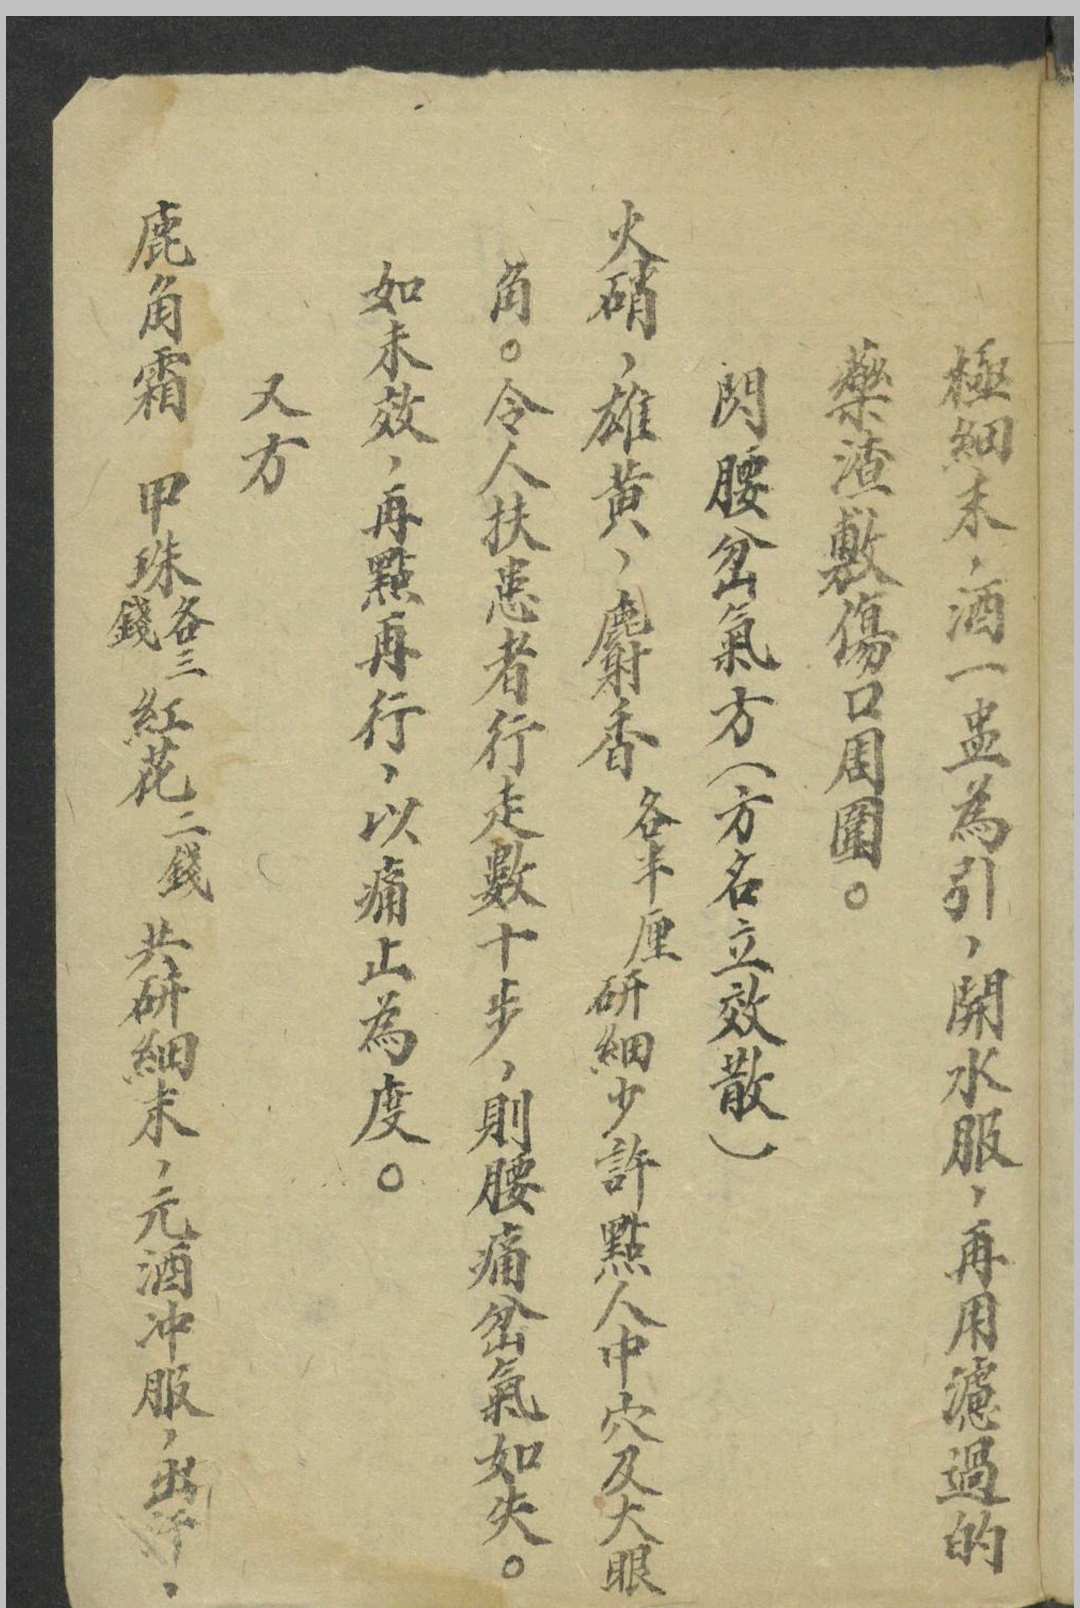 極細末，酒一盅為引，開水服，再用濾過的
藥渣敷傷口周圍。
閃腰岔氣方（方名立效散）
火硝，雄黃，麝香各半厘研細少許點人中穴及大眼
角。令人扶患者行走數十步，則腰痛岔氣如失。
如未效，再點再行，以痛止為度。
又方
鹿角霜　甲珠各三錢紅花二錢共研細末，元酒冲服，出汗，